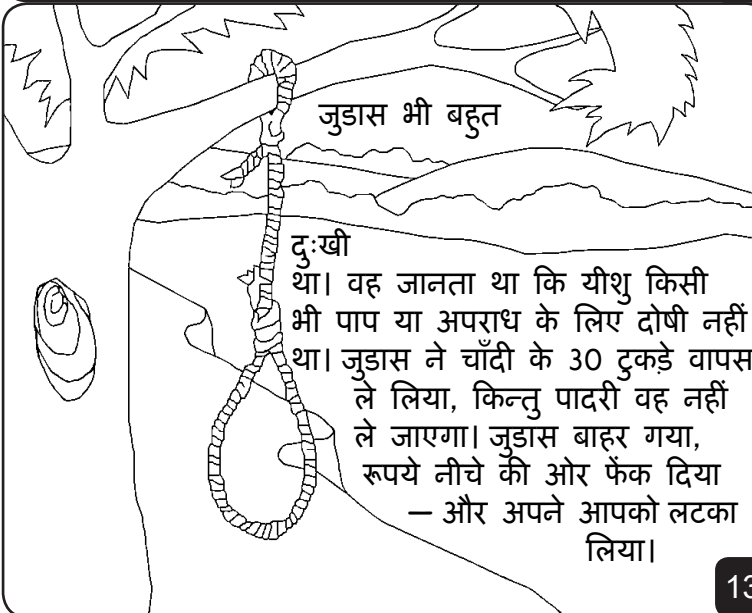 जुडास भी बहुत
दुःखी
था। वह जानता था कि यीशु किसी
भी पाप या अपराध के लिए दोषी नहीं
था। जुडास ने चाँदी के 30 टुकड़े वापस
ले लिया, किन्तु पादरी वह नहीं
ले जाएगा। जुडास बाहर गया,
रूपये नीचे की ओर फेंक दिया
– और अपने आपको लटका
लिया।
13